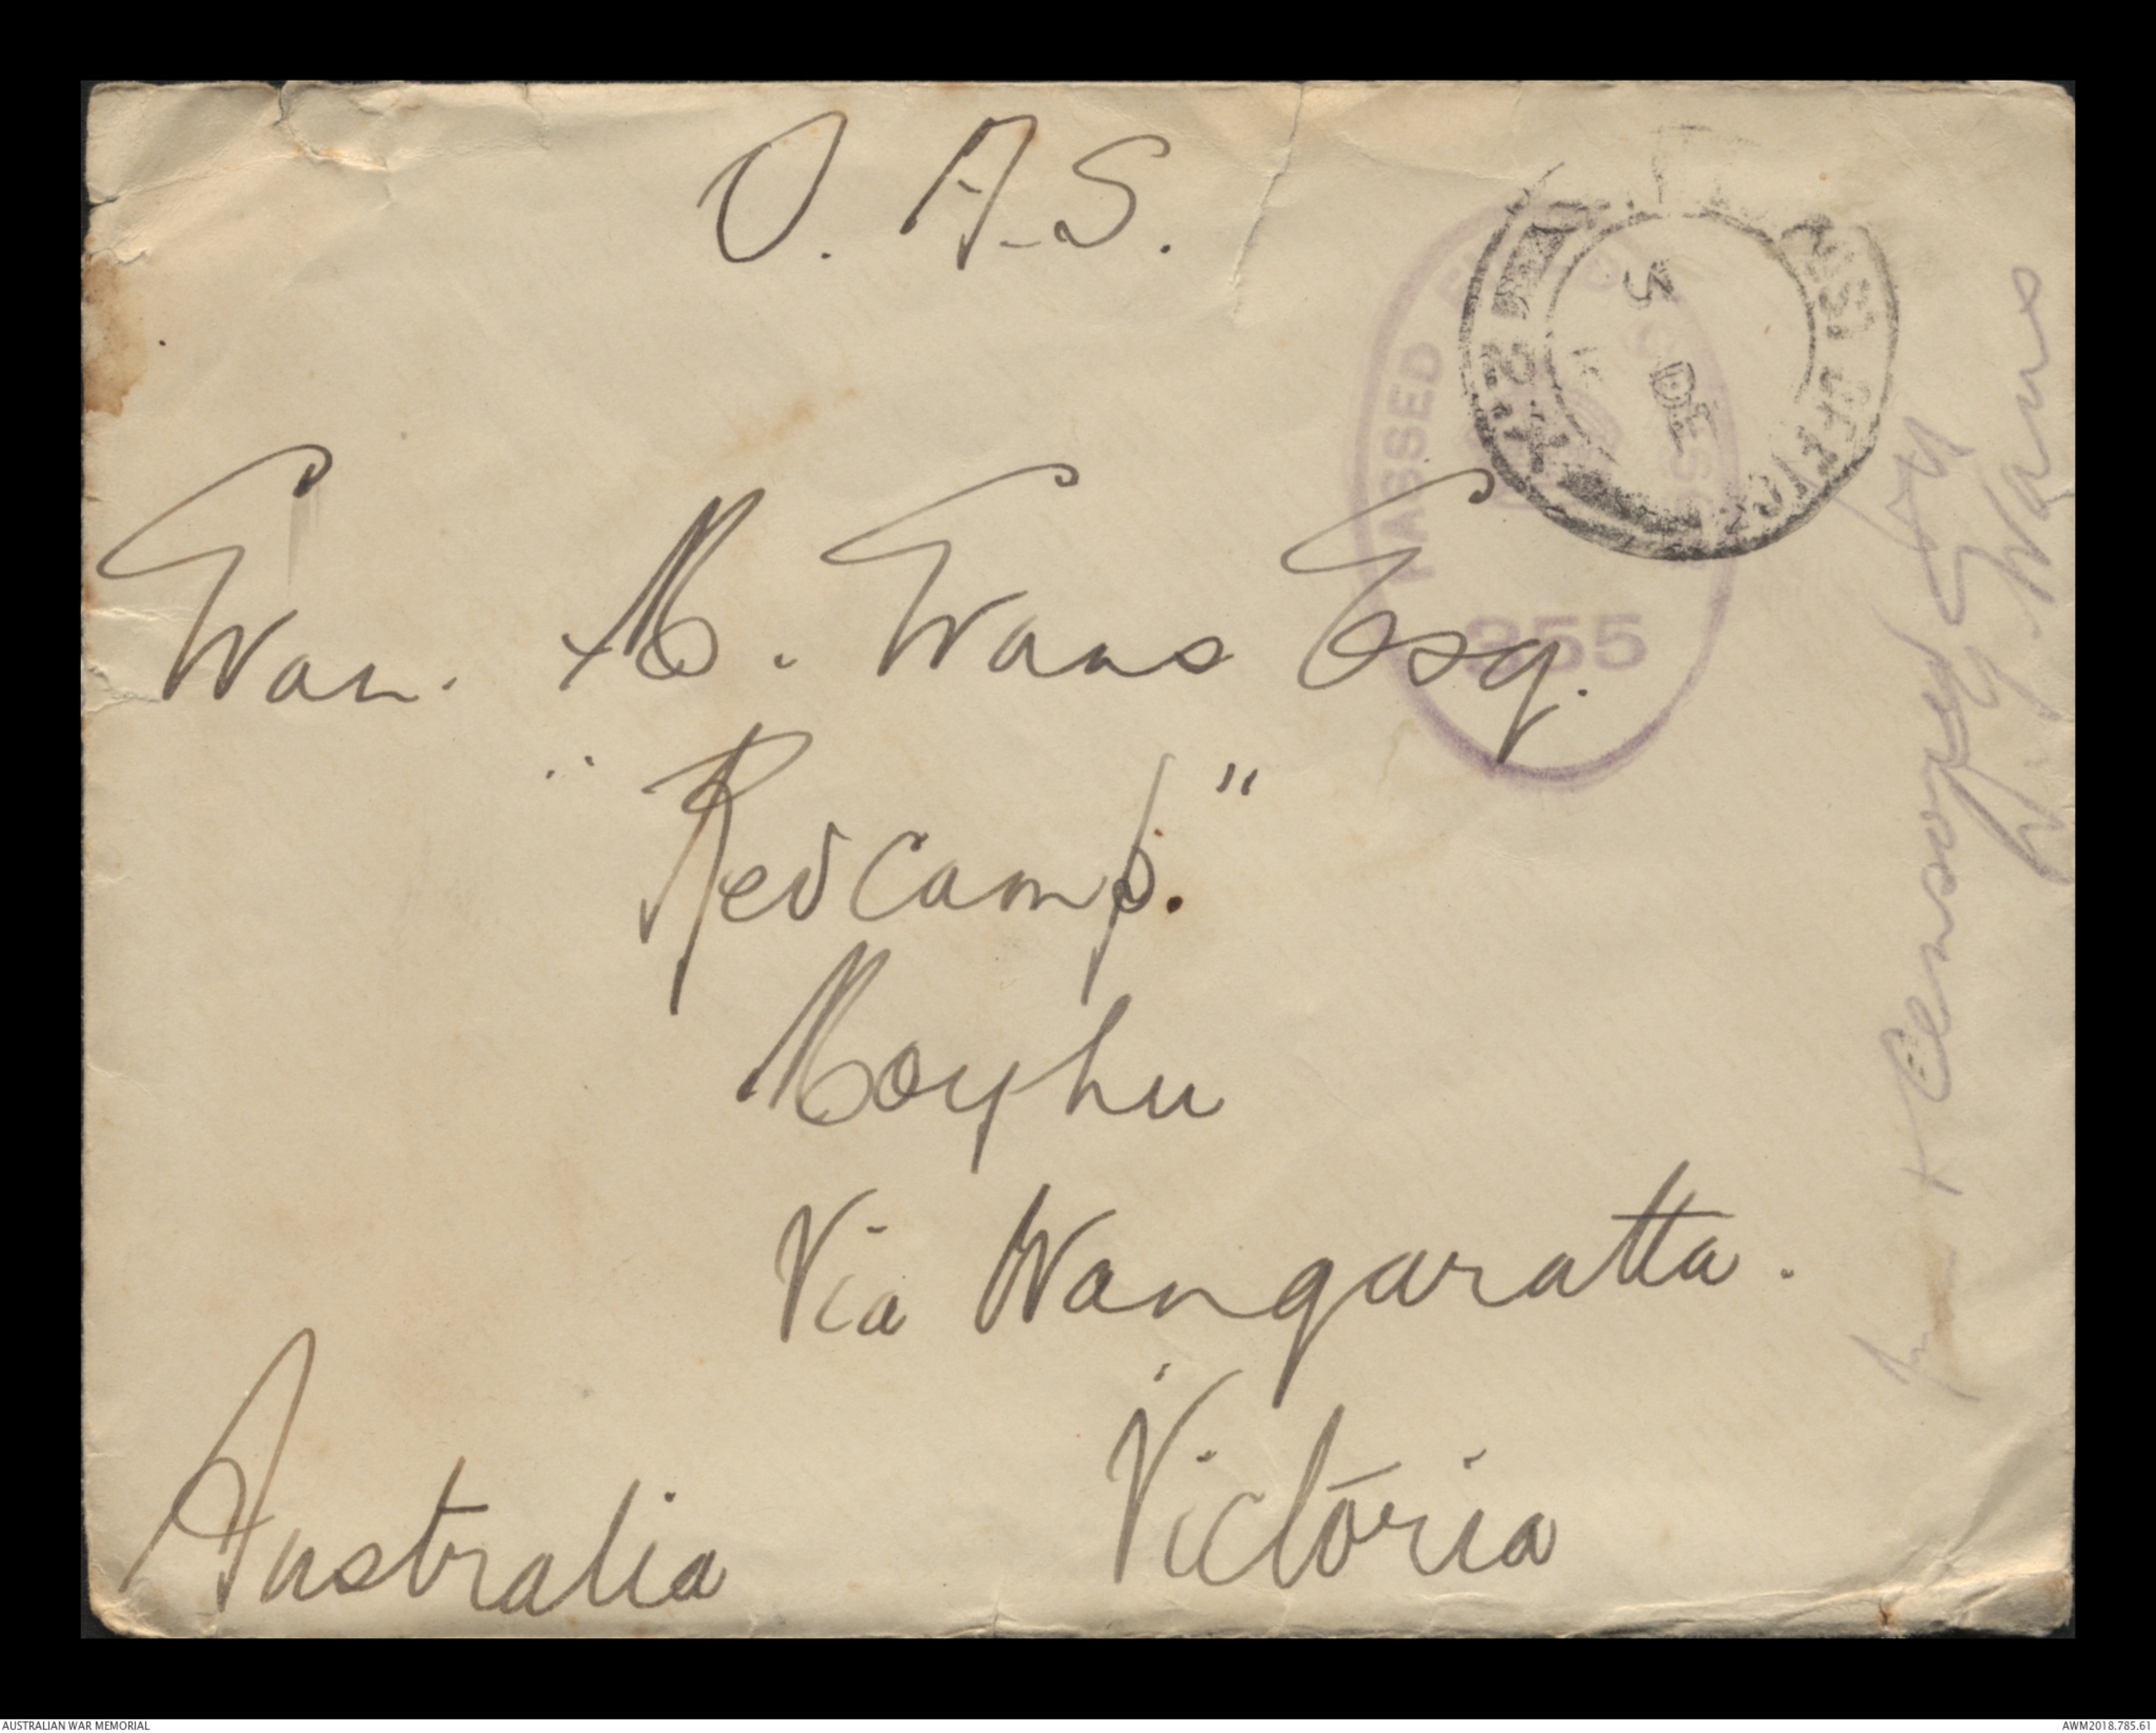 O.A.S.
Evan. M. Evans Esq.
"Redcamp."
Moyhu
Via Wangaratta.
Victoria
Australia
PASSED
855
5 DE
2
Censored by
Evans
AUSTRALIAN WAR MEMORIAL
AWM2018.785.61